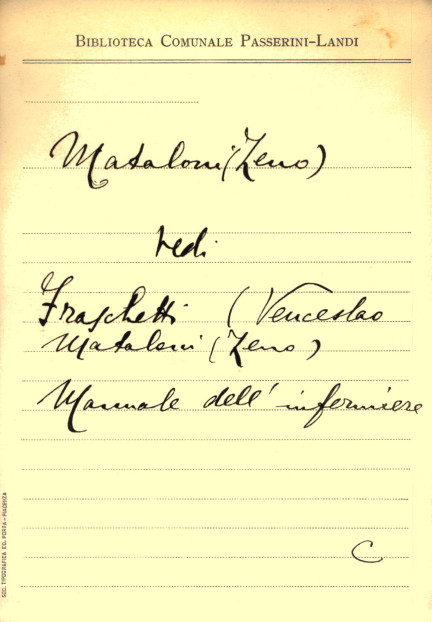 BIBLIOTECA COMUNALE PASSERINI-LANDI
Mataloni (Zeno)
vedi
Fraschetti (Venceslao
Mataloni (Zeno)
Manuale dell'infermiere
C
SOC. TIPOGRAFICA DEL PORTA - PIACENZA